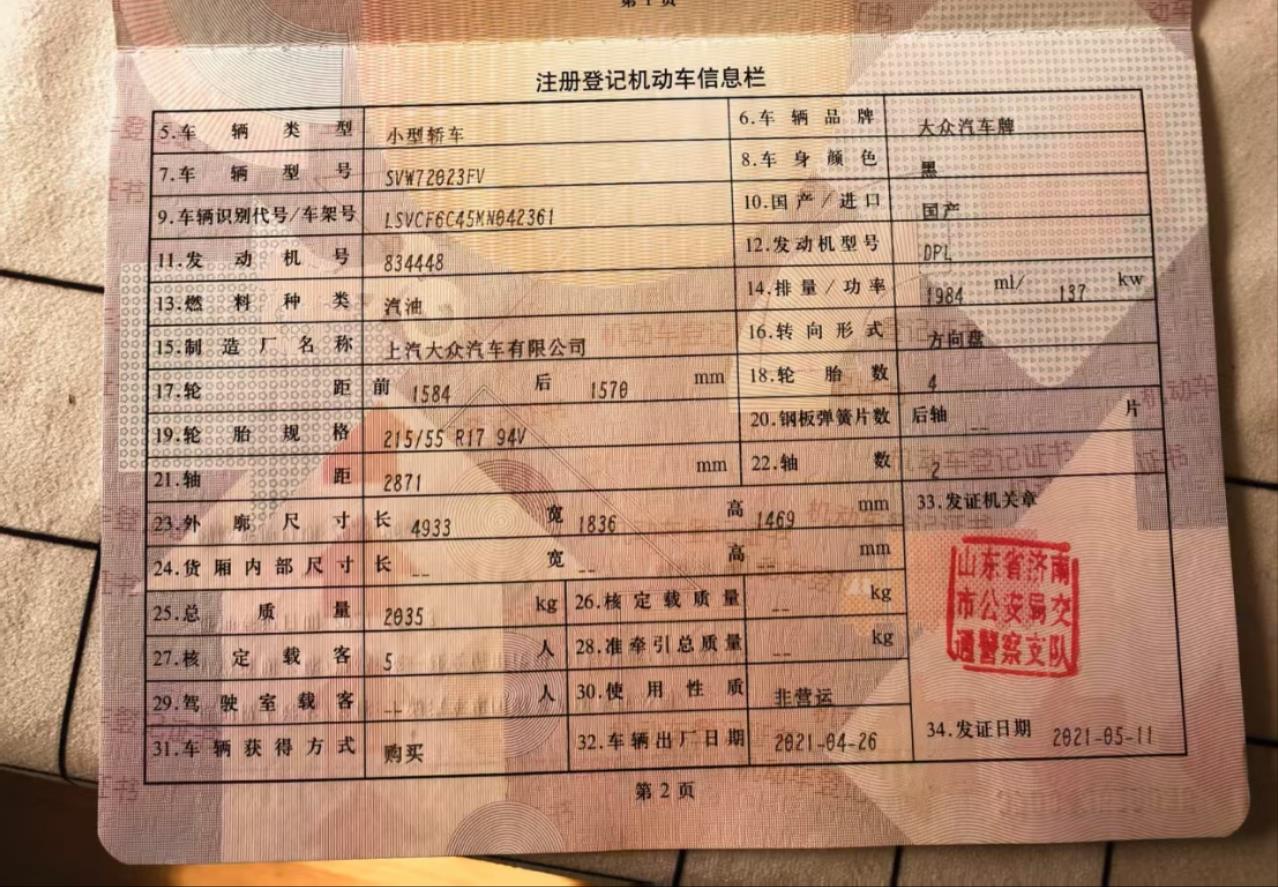 第1页
注册登记机动车信息栏
5.车辆类型 小型轿车 6.车辆品牌 大众汽车牌
7.车辆型号 SVW72023FV 8.车身颜色 黑
9.车辆识别代号/车架号 LSVCF6C45MN042361 10.国产/进口 国产
11.发动机号 834448 12.发动机型号 DPL
13.燃料种类 汽油 14.排量/功率 1984 ml/ 137 kw
15.制造厂名称 上汽大众汽车有限公司 16.转向形式 方向盘
17.轮距 前 1584 后 1570 mm 18.轮胎数 4
19.轮胎规格 215/55 R17 94V 20.钢板弹簧片数 后轴 -- 片
21.轴距 2871 mm 22.轴数 2
23.外廓尺寸 长 4933 宽 1836 高 1469 mm 33.发证机关章
24.货厢内部尺寸 长 -- 宽 -- 高 -- mm
山东省济南
市公安局交
通警察支队
25.总质量 2035 kg 26.核定载质量 -- kg
27.核定载客 5 人 28.准牵引总质量 -- kg
29.驾驶室载客 -- 人 30.使用性质 非营运
31.车辆获得方式 购买 32.车辆出厂日期 2021-04-26 34.发证日期 2021-05-11
第2页